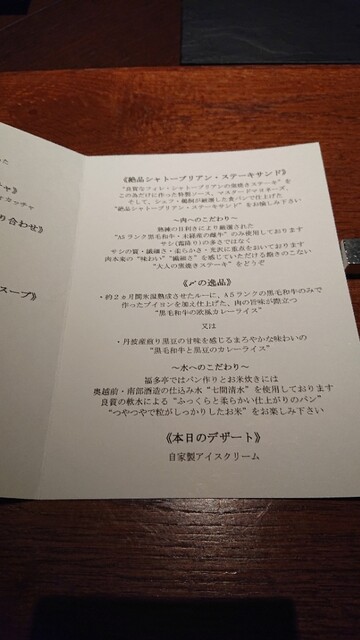 ャ》
カッチャ
り合わせ》
スープ》
《絶品シャトーブリアン・ステーキサンド》
"良質なフィレ・シャトーブリアンの炭焼きステーキ"を
この為だけに作った特製ソース、マスタードマヨネーズ、
そして、シェフ・鵜飼が厳選した食パンで仕上げた
"絶品シャトーブリアン・ステーキサンド"をお愉しみ下さい
～肉へのこだわり～
熟練の目利きにより厳選された
"A5ランク黒毛和牛・未経産の雌牛"のみ使用しております
サシ(霜降り)の多さではなく
サシの質・繊細さ・柔らかさ・光沢に重点をおいております
肉本来の"味わい""繊細さ"を感じていただける飽きのこない
"大人の黒焼きステーキ"をどうぞ
《〆の逸品》
・約2ヵ月間氷温熟成させたルーに、A5ランクの黒毛和牛のみで
作ったブイヨンを加え仕上げた、肉の旨味が際立つ
"黒毛和牛の欧風カレーライス"
又は
・丹波産煎り黒豆の甘味を感じるまろやかな味わいの
"黒毛和牛と黒豆のカレーライス"
～水へのこだわり～
福多亭ではパン作りとお米炊きには
奥越前・南部酒造の仕込み水"七間清水"を使用しております
良質の軟水による"ふっくらと柔らかい仕上がりのパン"
"つやつやで粒がしっかりしたお米"をお楽しみ下さい
《本日のデザート》
自家製アイスクリーム